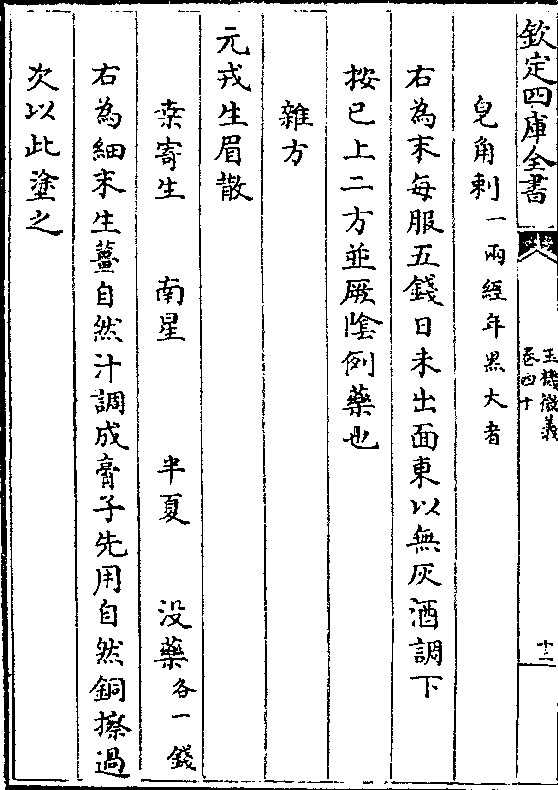 欽定四庫全書
玉機微義
卷四十
十二
皂角刺一兩經年黒大者
右為末每服五錢日未出面東以無灰酒調下
按已上二方並厥陰例藥也
雜方
元戎生眉散
桒寄生 南星 半夏 没藥各一錢
右為細末生薑自然汁調成膏子先用自然銅擦過
次以此塗之